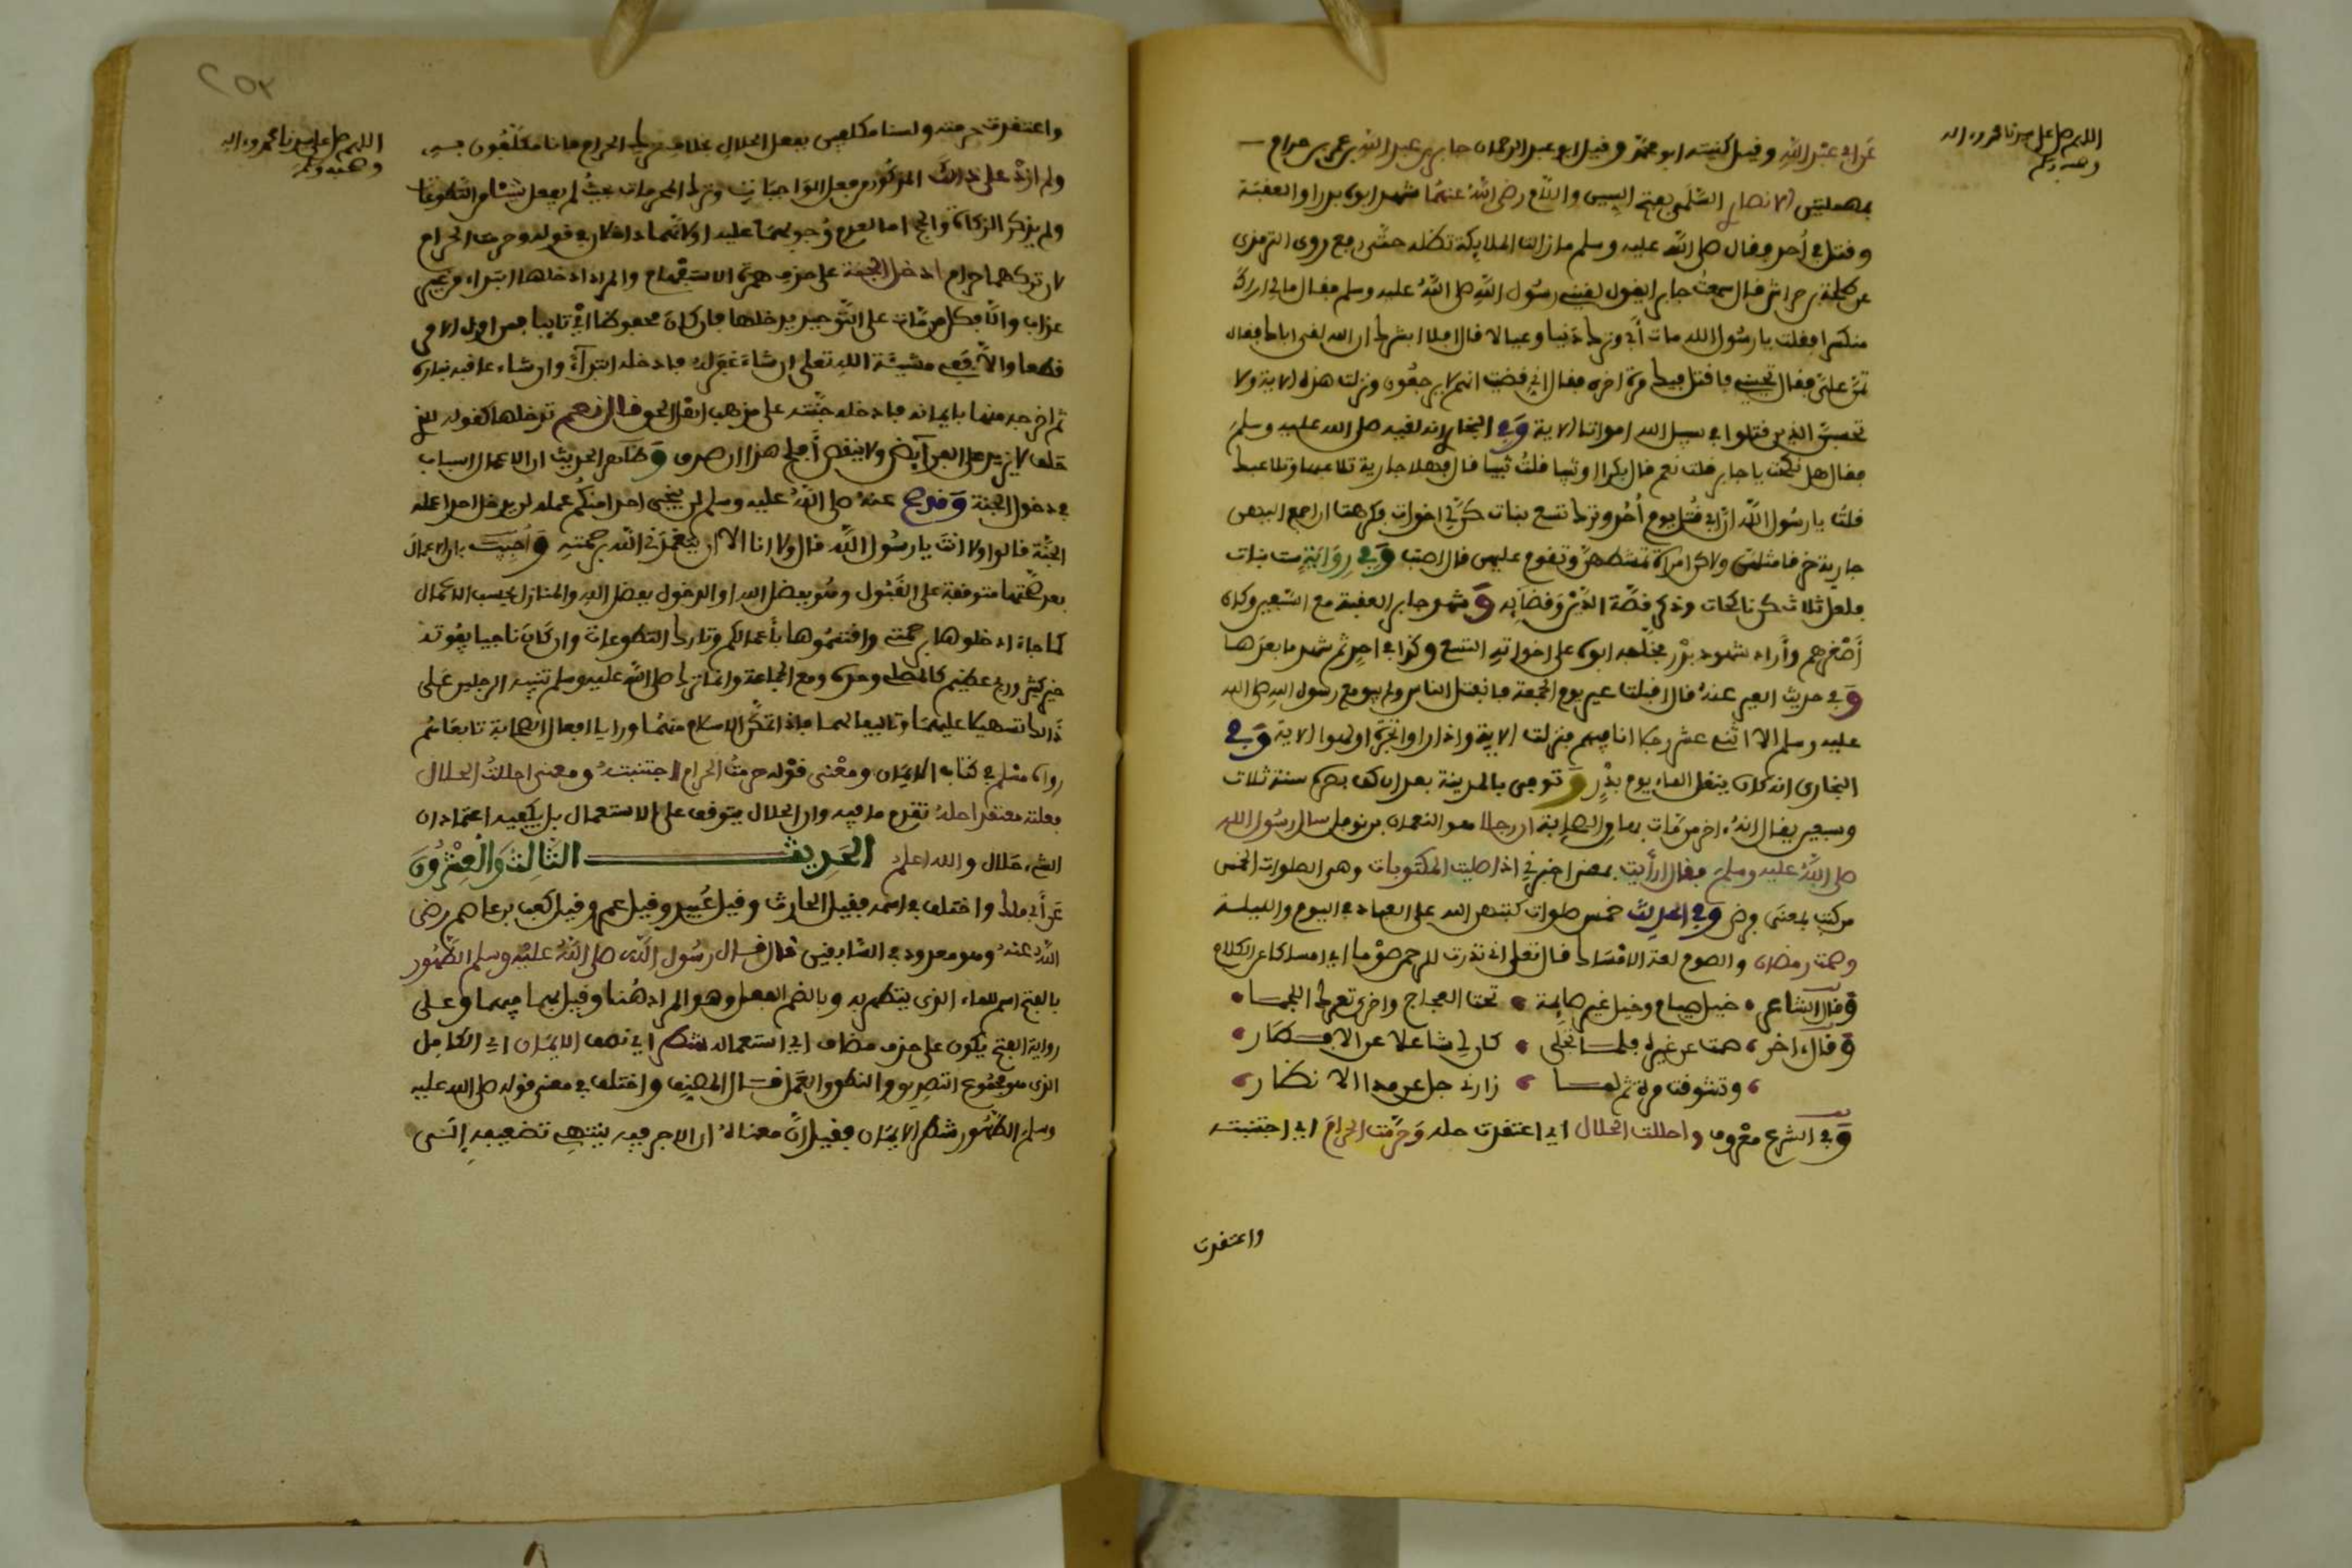 اللهم صل على سيدنا محمد واله
وصحبه وسلم
عن ابي عبد الله وقيل كنيته ابو محمد وقيل ابو عبد الرحمان جابر بن عبد الله بن عمرو بن حرام
بمهملتين الانصاري السلمي بفتح السين واللام رضي الله عنهما شهد ابوه بدرا والعقبة
وقتل في أحد وقال صلى الله عليه وسلم ما زالت الملايكة تظله حتى رفع روى الترمذي
عن طلحة بن خراش قال سمعت جابرا يقول لقيني رسول الله صلى الله عليه وسلم فقال ما لي اراك
منكسرا فقلت يا رسول الله مات أبي وترك دينا وعيالا قال افلا ابشرك ان الله لقي اباك فقال
تمن علي فقال تحييني فاقتل فيك مرة اخرى فقال اني قضيت انهم لا يرجعون ونزلت هذه الاية ولا
تحسبن الذين قتلوا في سبيل الله امواتا الاية وفي البخاري انه لقيه صلى الله عليه وسلم
فقال هل نكحت يا جابر قلت نعم قال بكرا او ثيبا قلت ثيبا قال فهلا جارية تلاعبها وتلاعبك
قلت يا رسول الله ان ابي قتل يوم أحد وترك تسع بنات كن لي اخوات فكرهت ان اجمع اليهن
جارية خرقا مثلهن ولاكن امرأة تمشطهن وتقوم عليهن قال اصبت وفي رواية ست بنات
فلعل ثلاث كن ناكحات وذكر قصة الدين وقضايه وشهد جابر العقبة مع السبعين وكان
أصغرهم وأراد شهود بدر فخلفه ابوه على اخواته التسع وكذا في احد ثم شهد ما بعدها
وفي حديث العير عنه قال اقبلت عير يوم الجمعة فانفتل الناس ولم يبق مع رسول الله صلى الله
عليه وسلم الا اثني عشر رجلا انا فيهم فنزلت الاية واذا راوا تجرة او لهوا الاية وفي
البخاري انه كان ينقل الماء يوم بدر وتوفي بالمدينة بعد ان كف بصره سنة ثلاث
وسبعين يقال انه اخر من مات بها من الصحابة ان رجلا هو النعمان بن نوفل سال رسول الله
صلى الله عليه وسلم فقال ارأيت بمعنى اخبرني اذا صليت المكتوبات وهي الصلوات الخمس
من كتب بمعنى فرض وفي الحديث خمس صلوات كتبهن الله على العباد في اليوم والليلة
وصمت رمضان والصوم لغة الامساك قال تعلى اني نذرت للرحمن صوما اي امساكا عن الكلام
وقال الشاعر خيل صيام وخيل غير صايمة تحت العجاج واخرى تعلك اللجما
وقال اخر صمت عن غيره فلما تجلى كان لي شاغلا عن الافطار
وتشوقت مرة ثم لما زارني جل عن مدا الانظار
وفي الشرع معروف واحللت الحلال اي اعتقدت حله وحرمت الحرام اي اجتنبته
واعتقدت
اللهم صل على سيدنا محمد واله
وصحبه وسلم
واعتقدت حرمته ولسنا مكلفين بفعل الحلال بخلاف ترك الحرام فانا مكلفون به
ولم ازد على ذالك المذكور من فعل الواجبات وترك المحرمات بحيث لم يفعل شيئا من التطوعات
ولم يذكر الزكاة والحج اما لعدم وجوبهما عليه او لانهما داخلان في قوله وحرمت الحرام
لان تركهما حرام ادخل الجنة على حذف همزة الاستفهام والمراد ادخلها ابتداء من غير
عذاب والا فكل من مات على التوحيد يدخلها فان كان محفوظا اي تايبا فمن اول الامر
قطعا والا ففي مشيئة الله تعلى ان شاء غفر له فادخله ابتداء وان شاء عاقبه بناره
ثم اخرجه منها بايمانه فادخله جنته على مذهب اهل الحق قال نعم تدخلها كقوله لمن
حلف لا يزيد على الفرايض ولا ينقص أفلح هذا ان صدق وظاهر الحديث ان الاعمال اسباب
في دخول الجنة وقد صح عنه صلى الله عليه وسلم لن ينجي احدا منكم عمله لن يدخل احدا عمله
الجنة قالوا ولا انت يا رسول الله قال ولا انا الا ان يتغمدني الله برحمته وأجيب بان الاعمال
بعد صحتها متوقفة على القبول وهو بفضل الله او الدخول بفضل الله والمنازل بحسب الاعمال
كما جاء ادخلوها برحمتي واقتسموها بأعمالكم وتارك التطوعات وان كان ناجيا يفوته
خير كثير وربح عظيم كالمصلي وحده ومع الجماعة وانما ترك صلى الله عليه وسلم تنبيه الرجلين على
ذالك تسهيلا عليهما وتاليفا لهما فاذا تمكن الاسلام منهما ورايا افعال الصحابة تابعاهم
رواه مسلم في كتاب الايمان ومعنى قوله حرمت الحرام اجتنبته ومعنى احللت الحلال
فعلته معتقدا حله تقدم ما فيه وان الحلال يتوقف على الاستعمال بل يكفيه اعتقاد ان
الشيء حلال والله اعلم الحديث الثالث والعشرون
عن أبي مالك واختلف في اسمه فقيل الحارث وقيل عبيد وقيل عمرو وقيل كعب بن عاصم رضي
الله عنه وهو معدود في الشاميين قال قال رسول الله صلى الله عليه وسلم الطهور
بالفتح اسم للماء الذي يتطهر به وبالضم الفعل وهو المراد هنا وقيل بهما فيهما وعلى
رواية الفتح يكون على حذف مضاف اي استعماله شطر اي نصف الايمان اي الكامل
الذي هو مجموع التصديق والنطق والعمل قال المصنف واختلف في معنى قوله صلى الله عليه
وسلم الطهور شطر الايمان فقيل ان معناه ان الاجر فيه ينتهي تضعيفه إلى